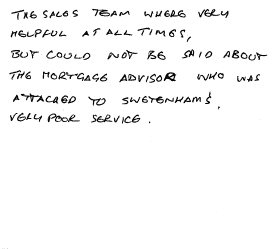 THE SALES TEAM WHERE VERY
HELPFUL AT ALL TIMES,
BUT COULD NOT BE SAID ABOUT
THE MORTGAGE ADVISOR WHO WAS
ATTACHED TO SWETENHAMS,
VERY POOR SERVICE.